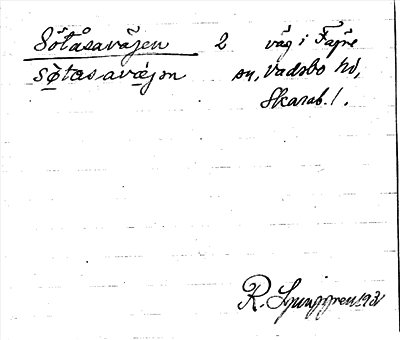 Sötåsavägen 2 väg i Fägre
søtasavæjen sn, Vadsbo hd,
Skarab. l.
R. Ljunggren